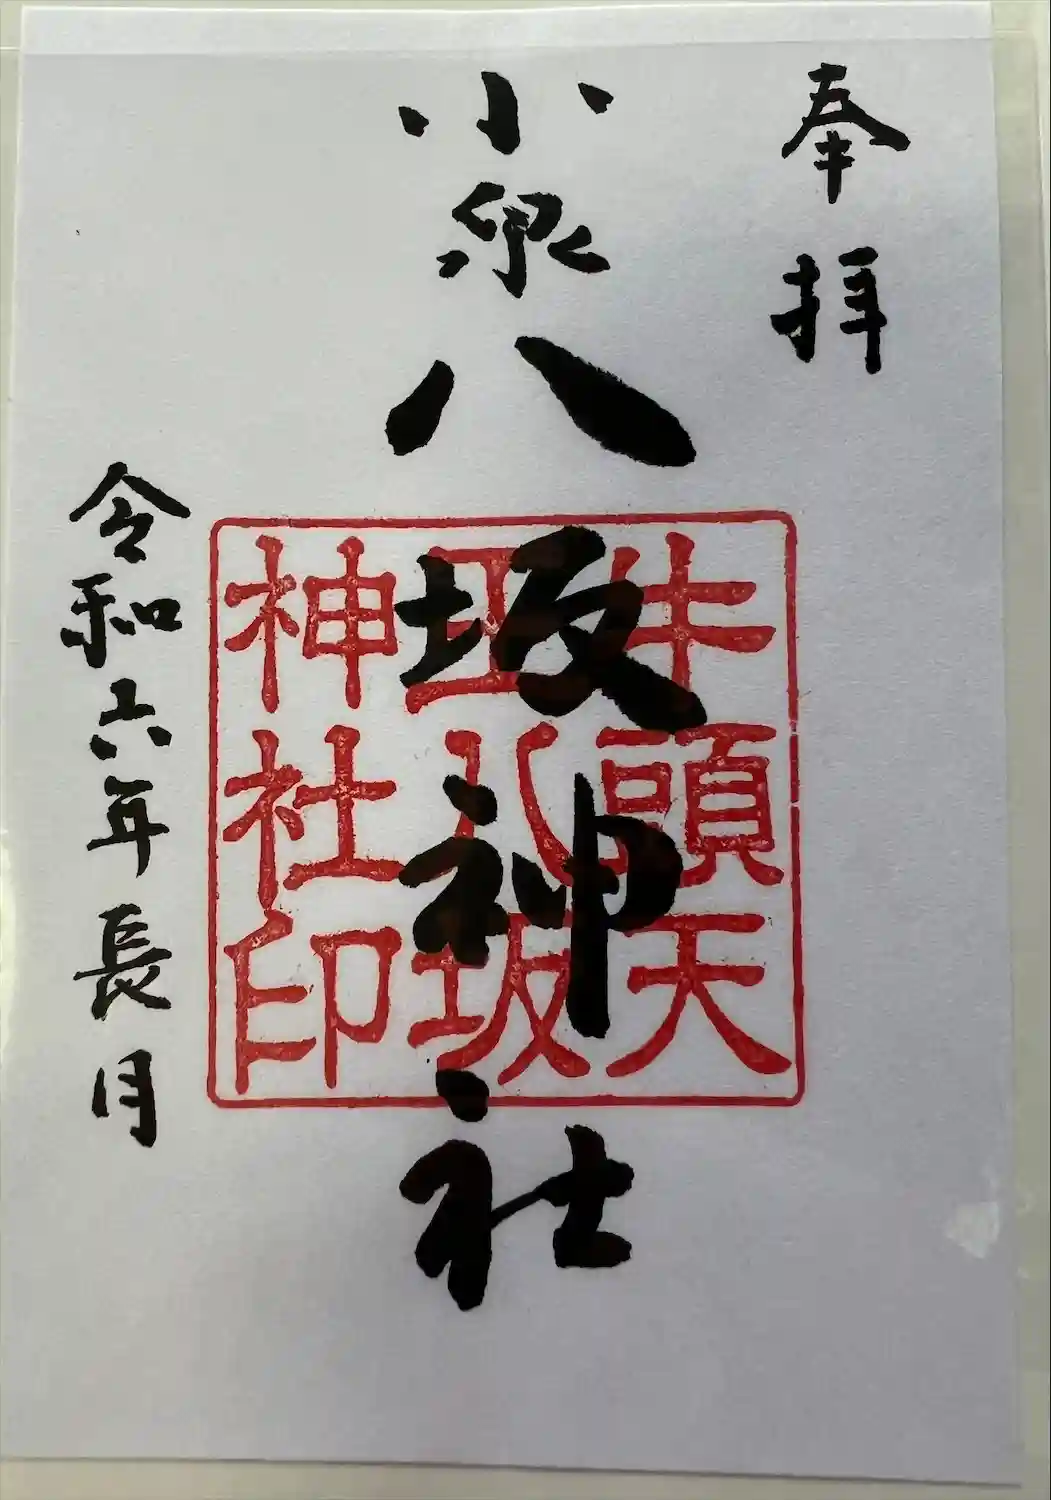 奉拝
小泉八坂神社
牛頭天
王八坂
神社印
令和六年長月